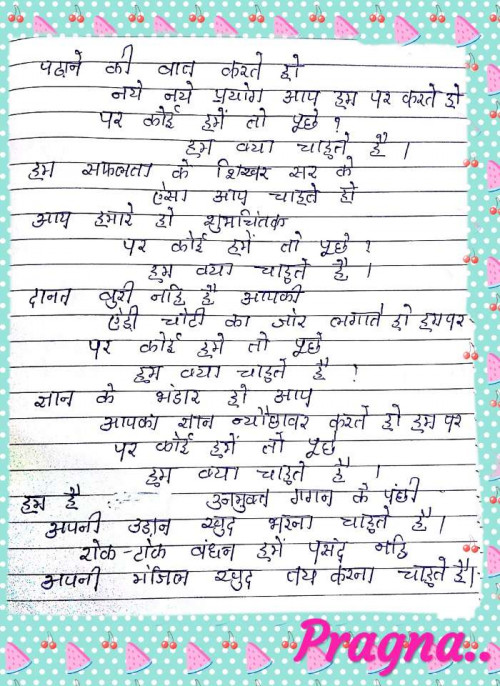 पढाने की बात करते हो
नये नये प्रयोग आप हम पर करते हो
पर कोई हमें तो पूछे ?
हम क्या चाहते है ।
हम सफलता के शिखर सर के
ऐसा आप चाहते हो
आप हमारे हो शुभचिंतक
पर कोई हमें तो पूछे ?
हम क्या चाहते है ।
दानत बुरी नहि है आपकी
ऐड़ी चोटी का जोर लगाते हो हम पर
पर कोई हमे तो पूछे
हम क्या चाहते है ?
ज्ञान के भंडार हो आप
आपका ज्ञान न्यौछावर करते हो हम पर
पर कोई हमें तो पूछे
हम क्या चाहते है ।
हम है उनमुक्त गगन के पंछी
अपनी उडान खुद भरना चाहते है ।
रोक-टोक बंधन हमें पसंद नहि
अपनी मंजिल खुद तय करना चाहते है ।
Pragna..